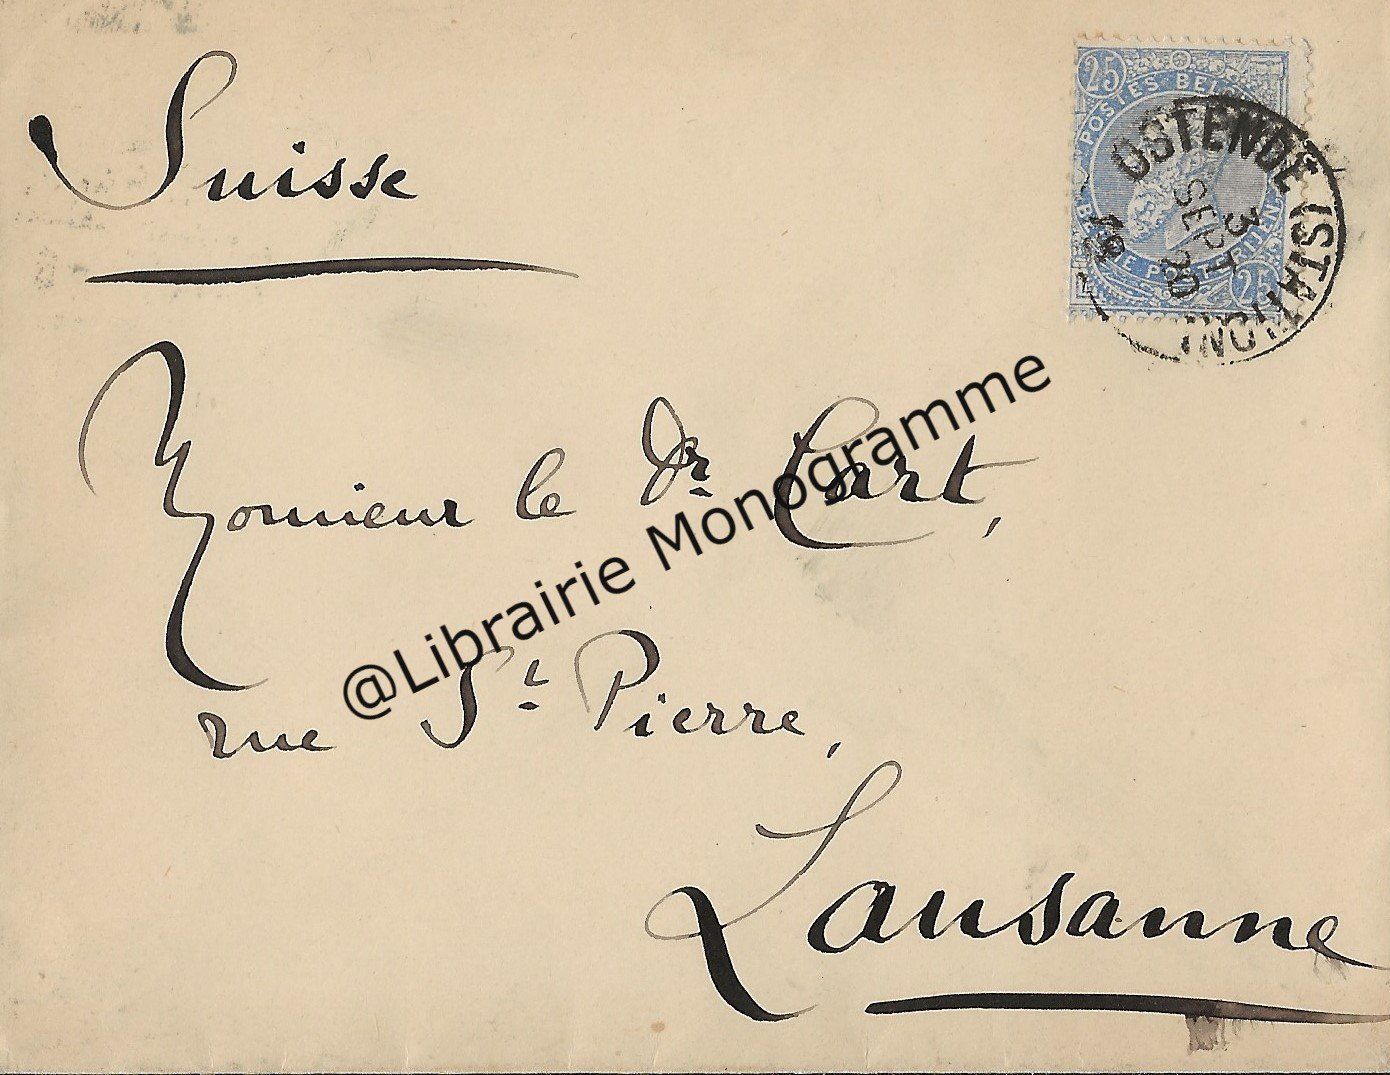 Suisse
25
POSTES BELG
POST EIJEN
25
OSTENDE (STATION)
3
SEPT
20
Monsieur le Dr. Cart,
@Librairie Monogramme
rue St. Pierre,
Lausanne